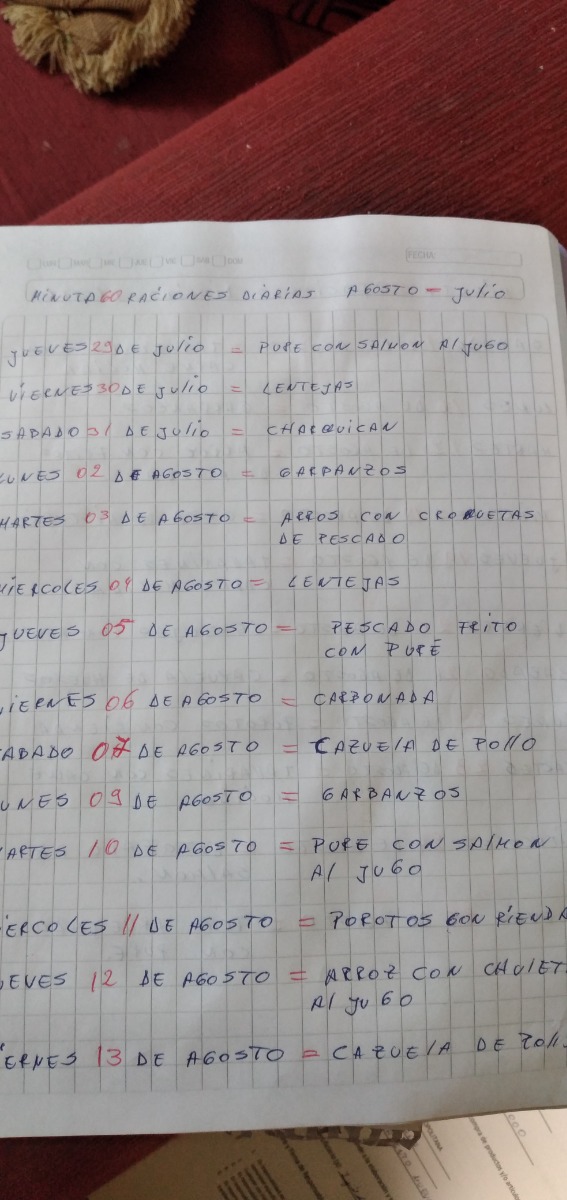 LUN MAR MIE JUE VIE SAB DOM FECHA:
MINUTA 60 RACIONES DIARIAS AGOSTO = JULIO
JUEVES 29 DE JULIO = PURE CON SALMON AL JUGO
VIERNES 30 DE JULIO = LENTEJAS
SABADO 31 DE JULIO = CHARQUICAN
LUNES 02 DE AGOSTO = GARBANZOS
MARTES 03 DE AGOSTO = ARROS CON CROQUETAS
DE PESCADO
MIERCOLES 04 DE AGOSTO = LENTEJAS
JUEVES 05 DE AGOSTO = PESCADO FRITO
CON PURÉ
IERNES 06 DE AGOSTO = CARBONADA
ABADO 07 DE AGOSTO = CAZUELA DE POLLO
UNES 09 DE AGOSTO = GARBANZOS
ARTES 10 DE AGOSTO = PURE CON SALMON
AL JUGO
IERCOLES 11 DE AGOSTO = POROTOS CON RIENDA
UEVES 12 DE AGOSTO = ARROZ CON CHULET
AL JUGO
IERNES 13 DE AGOSTO = CAZUELA DE POLL